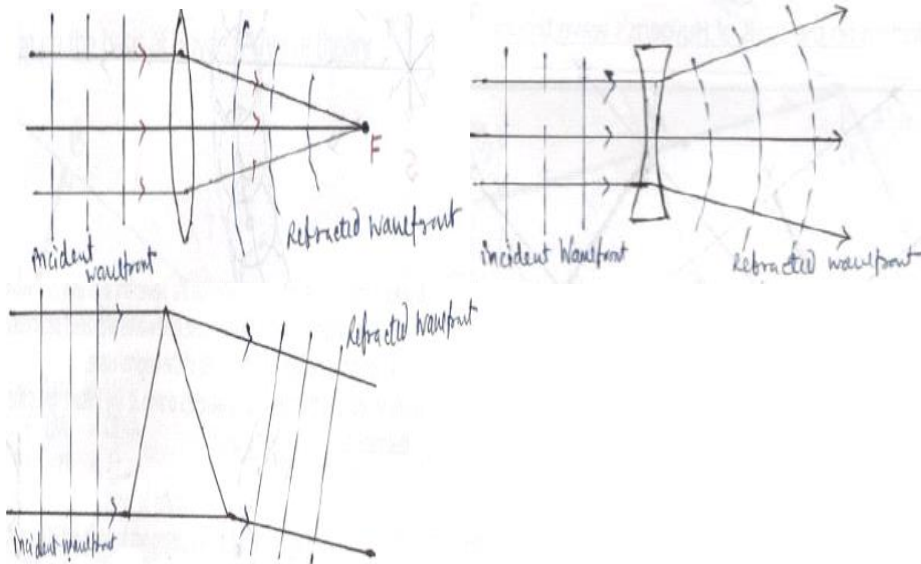 F
incident
wavefront
Refracted wavefront
incident wavefront
Refracted wavefront
Refracted wavefront
incident wavefront